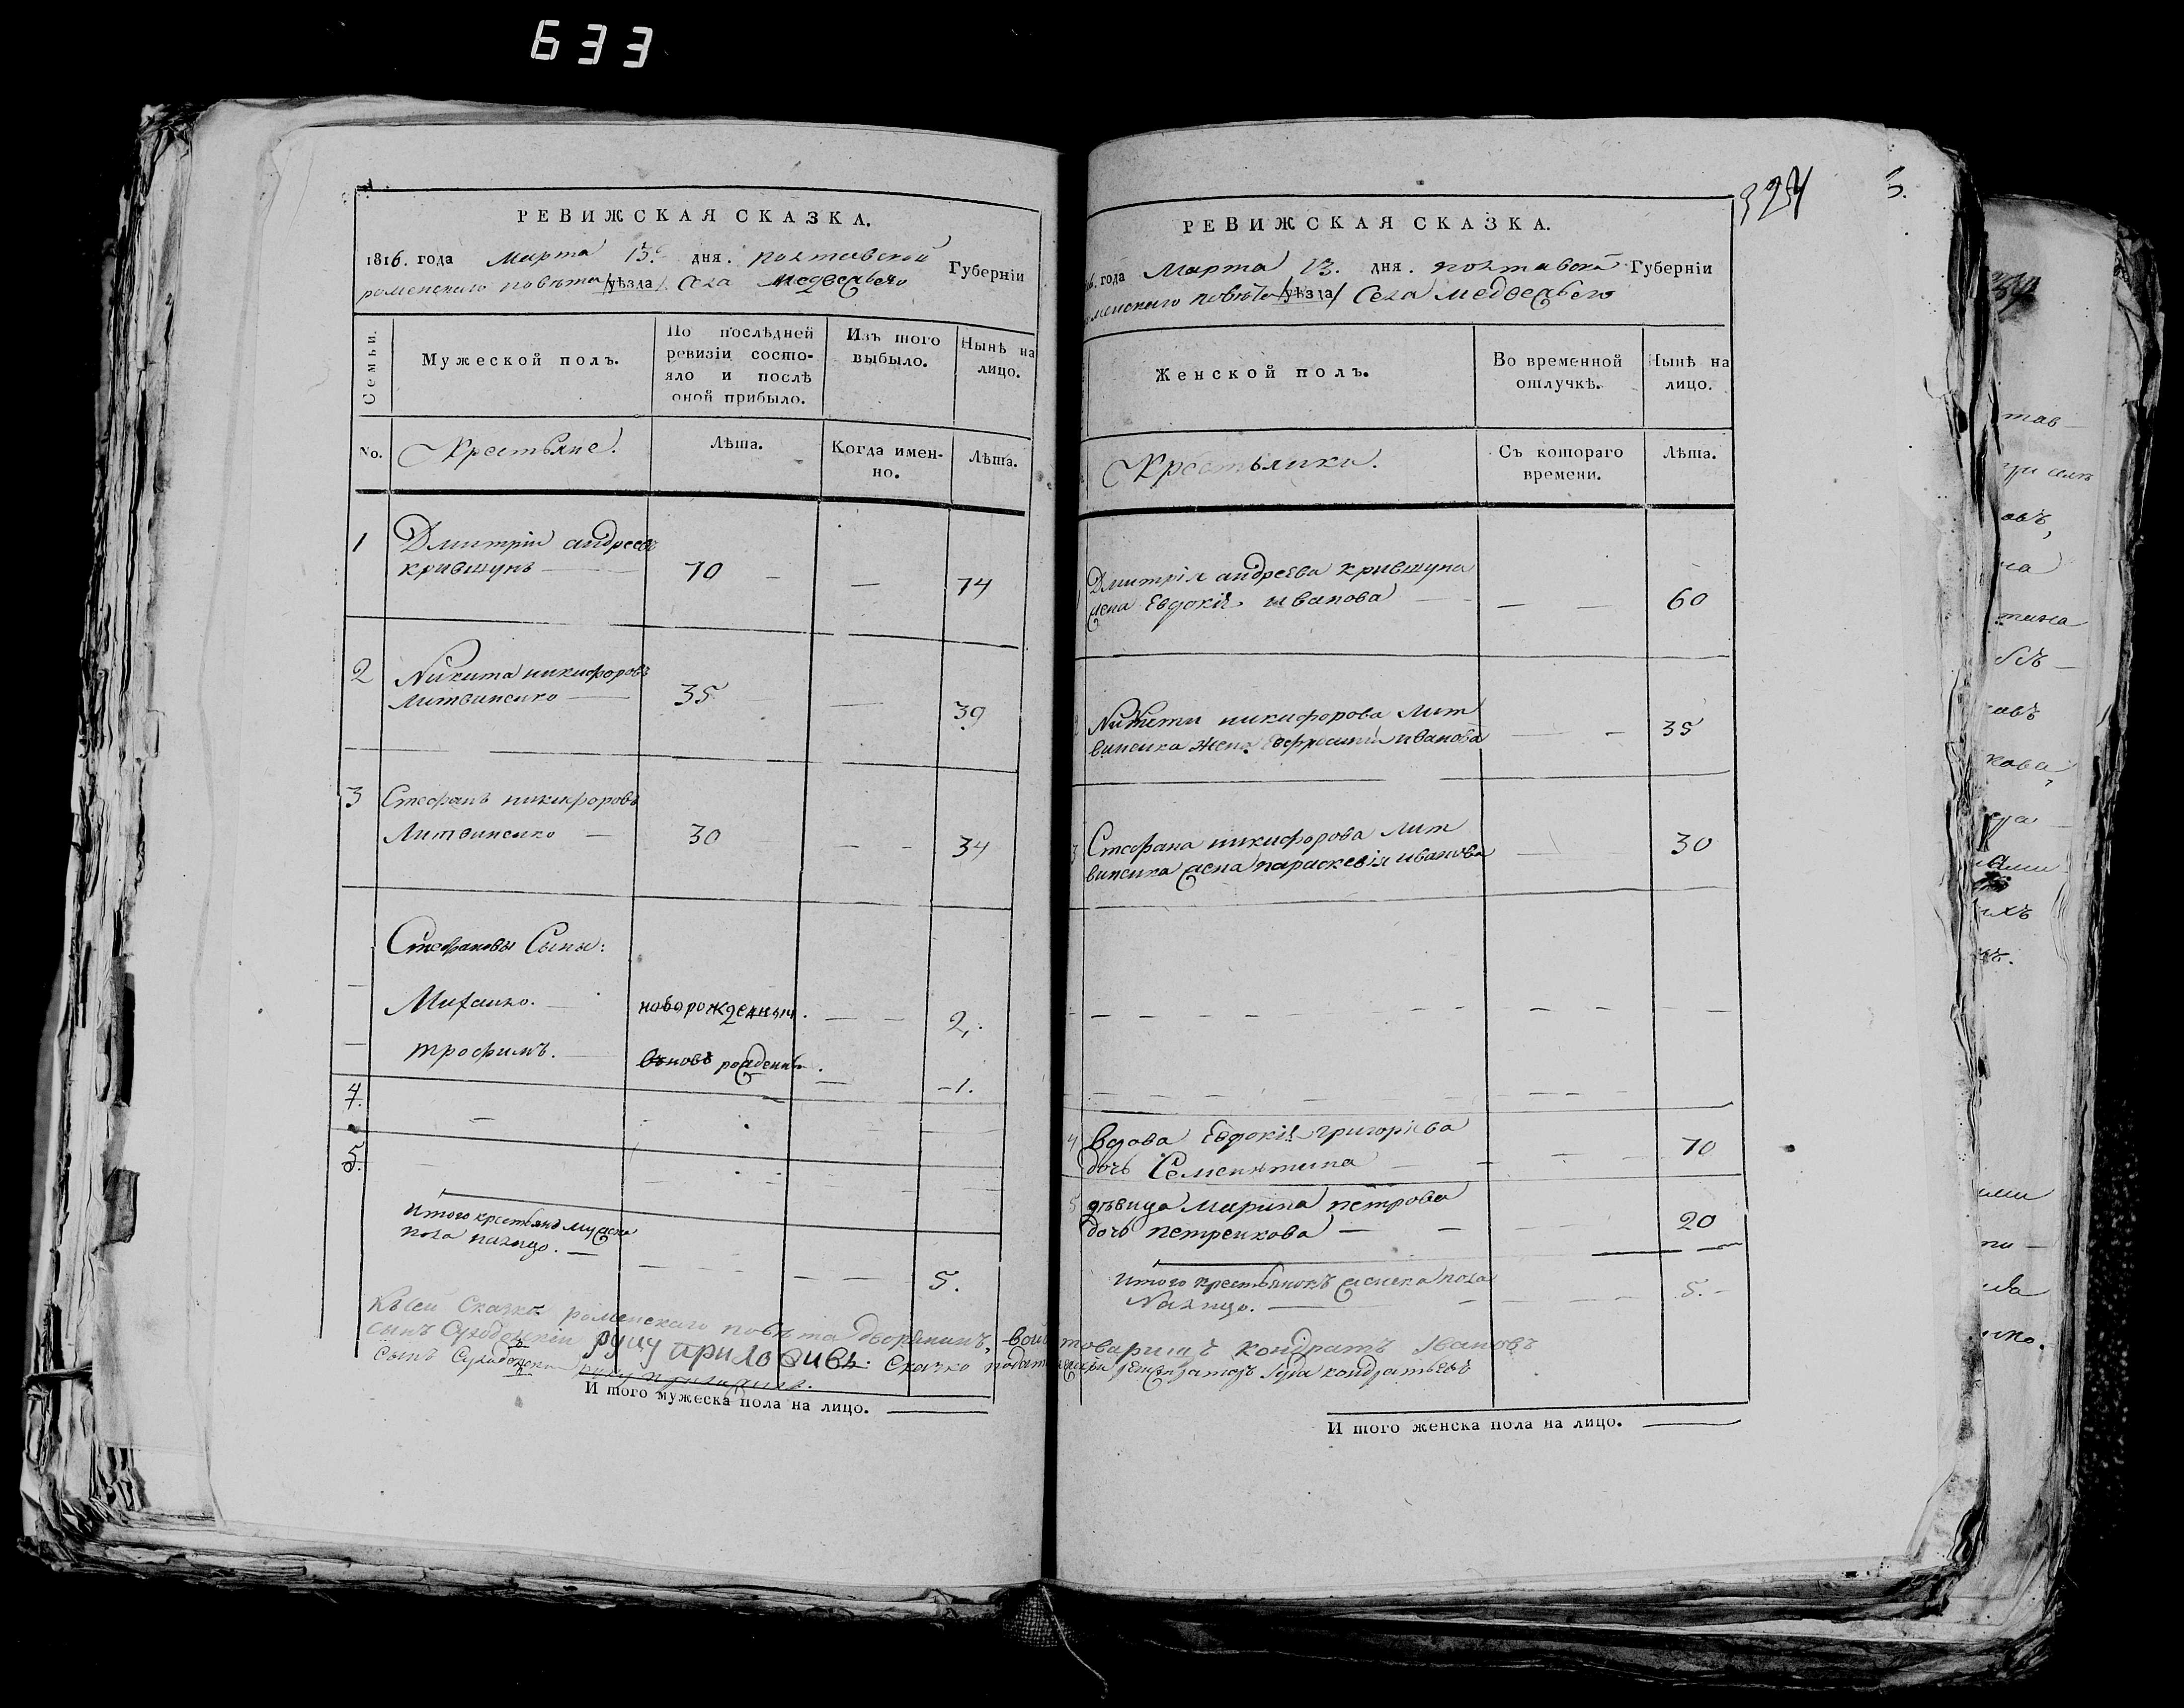 633
РЕВИЖСКАЯ СКАЗКА.
1816. года Марта 13. дня. полтавской Губерніи
роменского повѣта /уѣзда/ Села медвежьего
Семьи.
Мужеской полъ.
По послѣдней ревизіи состояло и послѣ оной прибыло.
Изъ того выбыло.
Нынѣ на лицо.
No.
Крестьяне.
Лѣта.
Когда именно.
Лѣта.
1 Дмитрій андреевъ
крившунъ — 70 — — 74
2 Никита никифоровъ
Литвиненко — 35 — 39
3 Стефанъ никифоровъ
Литвиненко — 30 — — 34
Стефановы Сыны:
Михайло. новорожденный. — — 2,.
трофимъ. вновъ рожденъ. — -1.
4.
5.
Итого крестьянъ мужска
пола налицо. — 5.
Къ сей Сказке роменского повѣта дворянинъ, товарищъ кондратъ Ивановъ
сынъ руку приложивъ. Сказко кондратьевъ
сынъ руку приложилъ.
И того мужеска пола на лицо.
324
5.
РЕВИЖСКАЯ СКАЗКА.
6. года Марта 13. дня. полтавской Губерніи
менского повѣта /уѣзда/ Села медвежьего
Женской полъ.
Во временной отлучкѣ.
Нынѣ на лицо.
Крестьянки.
Съ котораго времени.
Лѣта.
Дмитрія андреева крившуна
жена Евдокія иванова — — 60
2 Никиты никифорова Лит
виненка жена Евфросинія иванова — - 35
3 Стефана никифорова Лит
виненка жена параскевія иванова — 30
4 вдова Евдокія григоріева
дочь Семенютина — 70
5 дѣвица Марина петрова
дочь петренкова — — 20
Итого крестьянокъ женска пола
Налицо. — 5.-
И того женска пола на лицо.